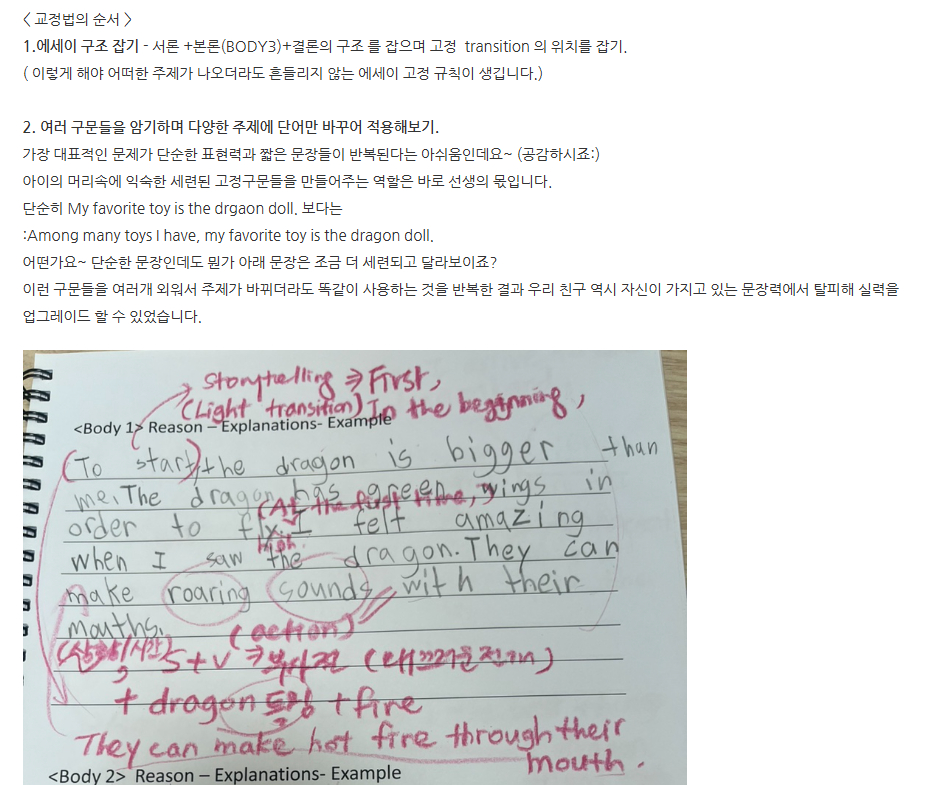 < 교정법의 순서 >
1.에세이 구조 잡기 - 서론 +본론(BODY3)+결론의 구조 를 잡으며 고정 transition 의 위치를 잡기.
( 이렇게 해야 어떠한 주제가 나오더라도 흔들리지 않는 에세이 고정 규칙이 생깁니다.)
2. 여러 구문들을 암기하며 다양한 주제에 단어만 바꾸어 적용해보기.
가장 대표적인 문제가 단순한 표현력과 짧은 문장들이 반복된다는 아쉬움인데요~ (공감하시죠:)
아이의 머리속에 익숙한 세련된 고정구문들을 만들어주는 역할은 바로 선생의 몫입니다.
단순히 My favorite toy is the drgaon doll. 보다는
:Among many toys I have, my favorite toy is the dragon doll.
어떤가요~ 단순한 문장인데도 뭔가 아래 문장은 조금 더 세련되고 달라보이죠?
이런 구문들을 여러개 외워서 주제가 바뀌더라도 똑같이 사용하는 것을 반복한 결과 우리 친구 역시 자신이 가지고 있는 문장력에서 탈피해 실력을
업그레이드 할 수 있었습니다.
Storytelling ⇒ First,
(Light transition) In the beginning,
<Body 1> Reason – Explanations- Example
(To start) the dragon is bigger than
me. The dragon has green wings in
(At the first time,
order to fly. I felt amazing
high.
when I saw the dragon. They can
make roaring sounds with their
mouths.
(action)
(상황/시간) S+V
+ dragon 등장 + fire
They can make hot fire through their
mouth.
<Body 2> Reason – Explanations- Example